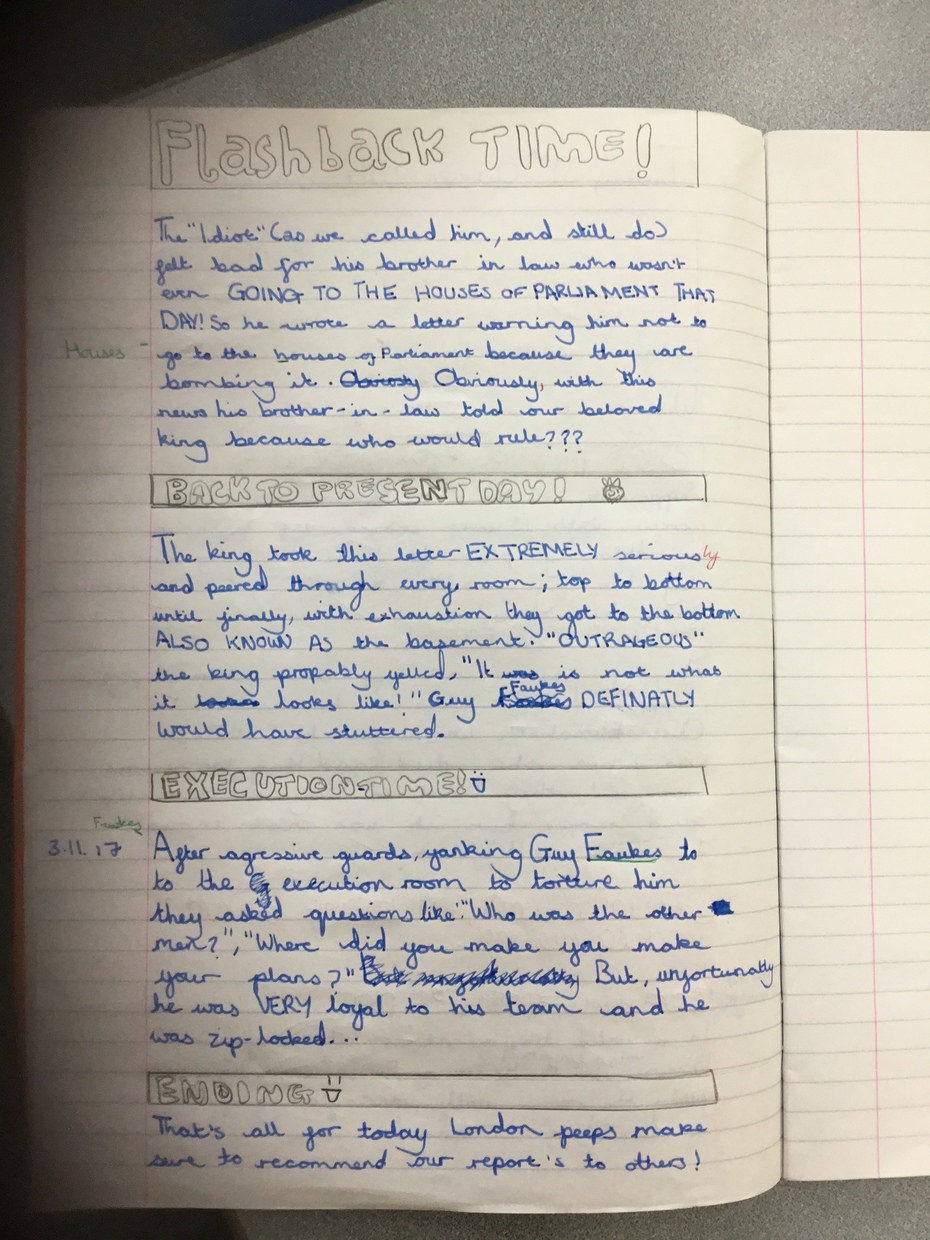 Flashback TIME!
The "Idiot" (as we called him, and still do)
felt bad for his brother in law who wasn't
even GOING TO THE HOUSES OF PARLIAMENT THAT
DAY! So he wrote a letter warning him not to
Houses - go to the houses of Parliament because they are
bombing it. Obviosly Obviously, with this
news his brother-in-law told our beloved
king because who would rule???
BACK TO PRESENT DAY!
The king took this letter EXTREMELY seriously
and peered through every, room; top to bottom
until finally, with exhaustion they got to the bottom
ALSO KNOWN AS the basement. "OUTRAGEOUS"
the king propably yelled, "It was is not what
Faukes
it looks like!" Guy DEFINATLY
would have stuttered.
EXECUTION-TIME!
Fawkes
3.11.17 After agressive guards, yanking Guy Faukes to
to the execution room to torture him
they asked questions like "Who was the other
men?", "Where did you make you make
your plans?" But, unfortunatly
he was VERY loyal to his team and he
was zip-locked...
ENDING
That's all for today London peeps make
sure to recommend our report's to others!